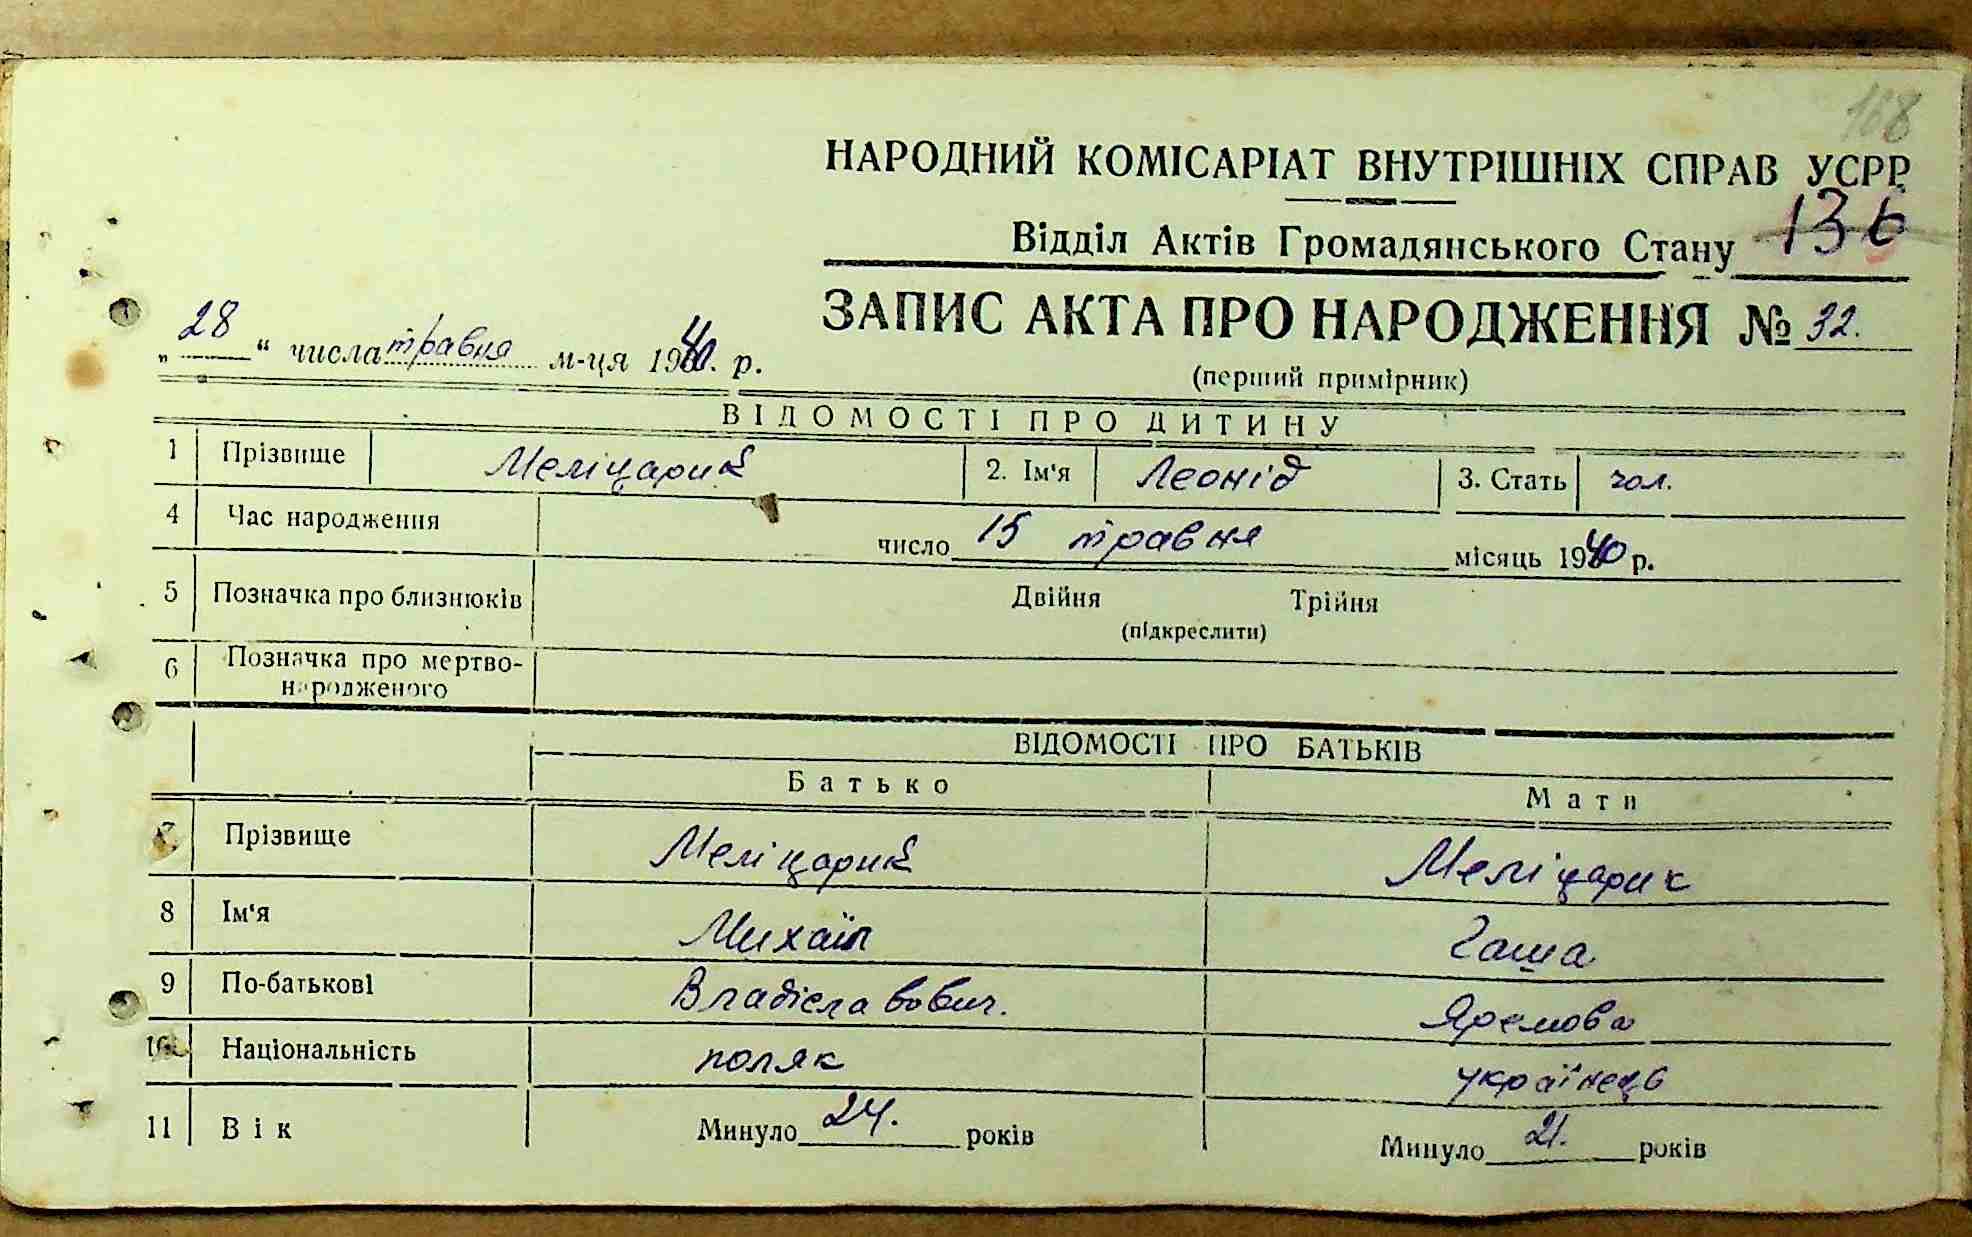 168
НАРОДНИЙ КОМІСАРІАТ ВНУТРІШНІХ СПРАВ УСРР
136
Відділ Актів Громадянського Стану
ЗАПИС АКТА ПРО НАРОДЖЕННЯ № 32.
„28“ числа травня м-ця 1940. р.
(перший примірник)
ВІДОМОСТІ ПРО ДИТИНУ
1 Прізвище Меліцарик 2. Ім'я Леонід 3. Стать чол.
4 Час народження число 15 травня місяць 1940 р.
5 Позначка про близнюків Двійня Трійня
(підкреслити)
6 Позначка про мертво-
народженого
ВІДОМОСТІ ПРО БАТЬКІВ
Батько Мати
7 Прізвище Меліцарик Меліцарик
8 Ім'я Михаіл Гаша
9 По-батькові Владіславович. Яремова
10 Національність поляк українець
11 Вік Минуло 24. років Минуло 21. років